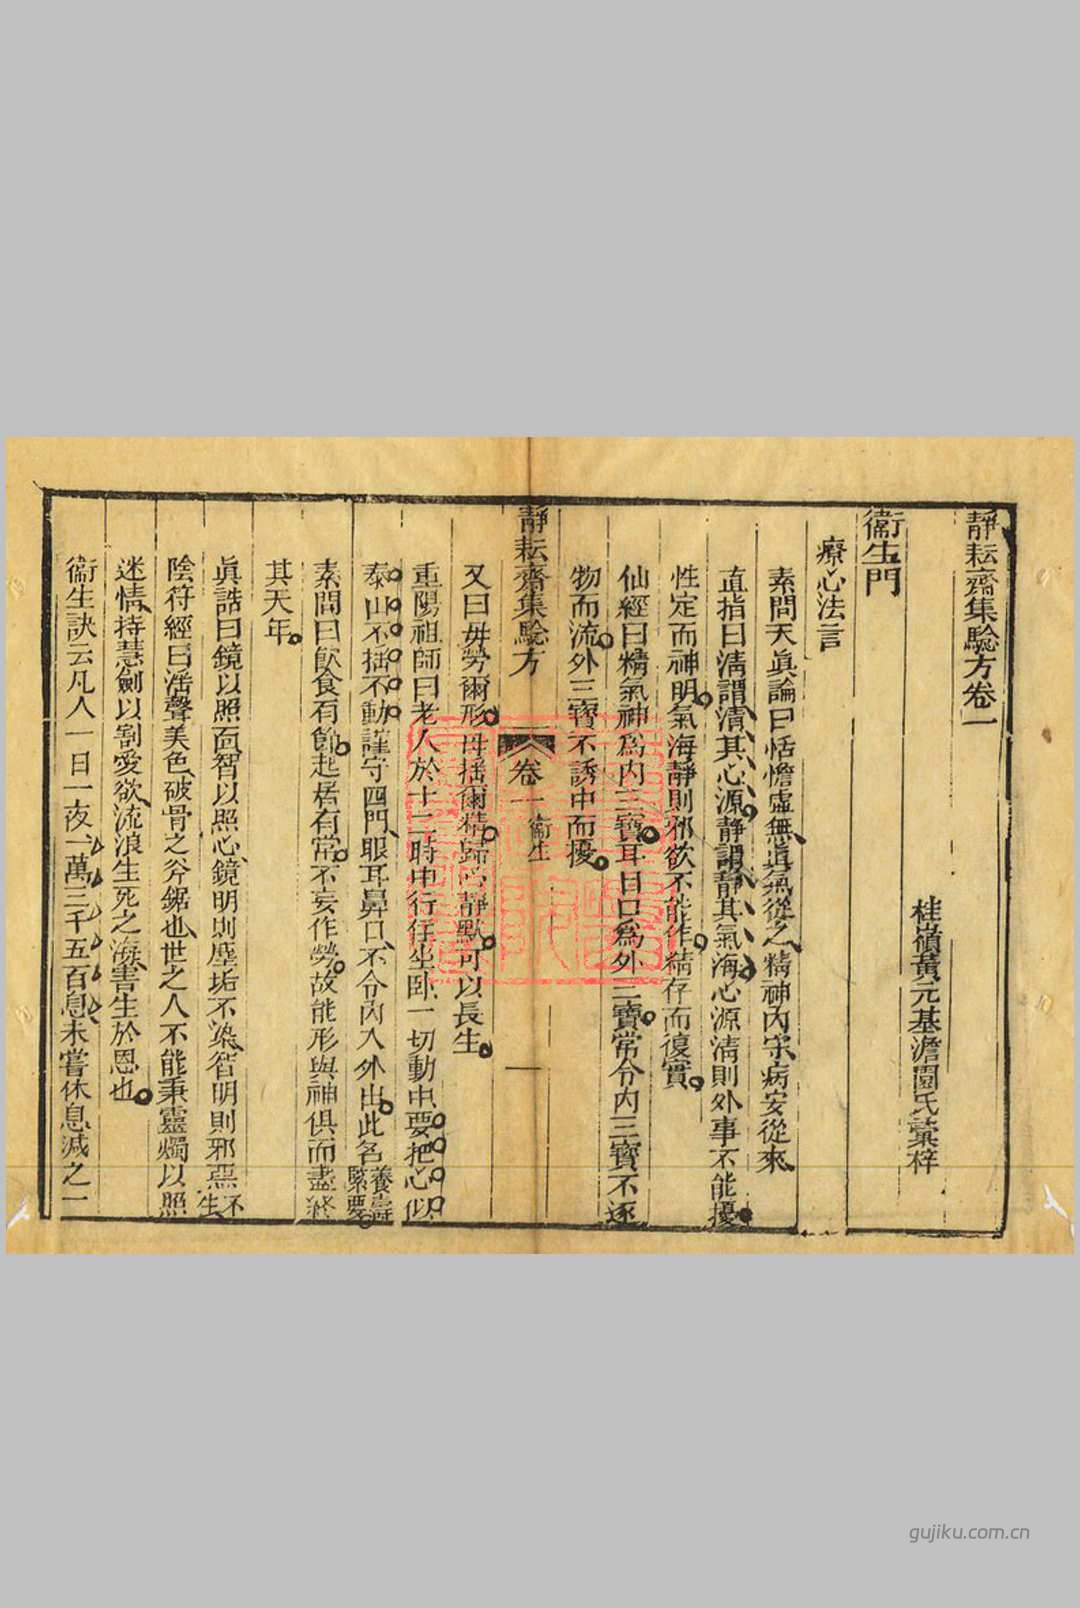 靜耘齋集驗方卷一
桂嶺黃元基澹園氏彙梓
衞生門
療心法言
素問天眞論曰恬憺虛無眞氣從之精神內守病安從來
直指曰淸謂淸其心源靜謂靜其氣海心源淸則外事不能擾
性定而神明氣海靜則邪欲不能作精存而復實
仙經曰精氣神爲內三寶耳目口爲外三寶常令內三寶不逐
物而流外三寶不誘中而擾
靜耘齋集驗方
卷一
衞生
一
又曰毋勞爾形毋搖爾精歸心靜默可以長生
重陽祖師曰老人於十二時中行住坐卧一切動中要把心似
泰山不搖不動謹守四門眼耳鼻口不令內入外出此名養壽緊要
素問曰飮食有節起居有常不妄作勞故能形與神俱而盡終
其天年
眞誥曰鏡以照面智以照心鏡明則塵垢不染智明則邪惡不生
陰符經曰淫聲美色破骨之斧鋸也世之人不能秉靈燭以照
迷情持慧劍以割愛欲流浪生死之海害生於恩也
衞生訣云凡人一日一夜一萬三千五百息未嘗休息減之一
gujiku.com.cn